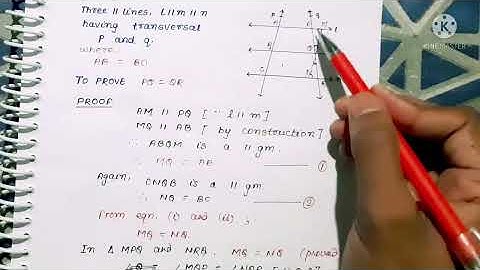 Three || lines, L||m||n
having transversal
P and q.
where,
AB = BC
TO PROVE PQ = QR
PROOF
AM || PQ [ ∵ l || m ]
MQ || AB [ by construction ]
∴ ABQM is a || gm.
∴ MQ = AB ——— ①
Again,
CNQB is a || gm
∴ NQ = BC ——— ②
From eqn. (i) and (ii),
MQ = NQ.
In △ MPQ and NRQ. MQ = NQ (proved
K
KINEMASTER